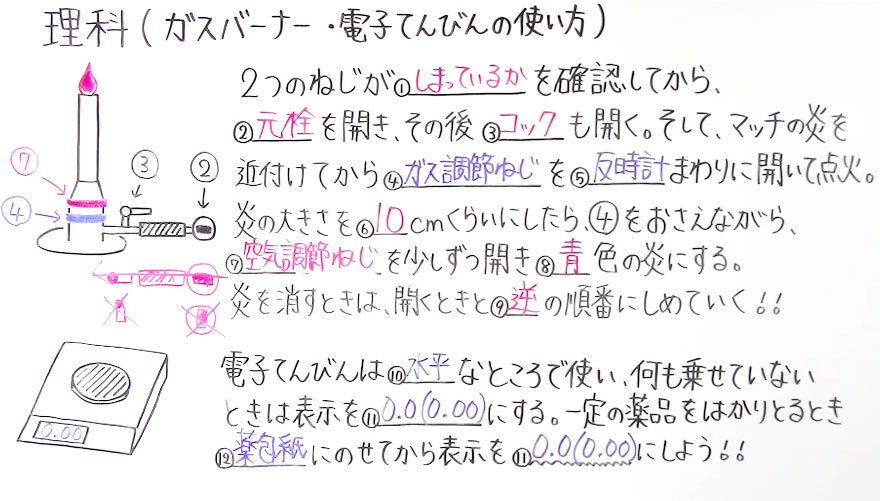 理科(ガスバーナー・電子てんびんの使い方)
2つのねじが①しまっているかを確認してから、
②元栓を開き、その後③コックも開く。そして、マッチの炎を
近付けてから④ガス調節ねじを⑤反時計まわりに開いて点火。
炎の大きさを⑥10cmくらいにしたら、④をおさえながら、
⑦空気調節ねじを少しずつ開き⑧青色の炎にする。
炎を消すときは、開くときと⑨逆の順番にしめていく!!
⑦
③
②
④
電子てんびんは⑩水平なところで使い、何も乗せていない
ときは表示を⑪0.0(0.00)にする。一定の薬品をはかりとるとき
⑫薬包紙にのせてから表示を⑪0.0(0.00)にしよう!!
0.00